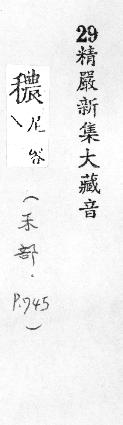 29精嚴新集大藏音
穠尼容
（禾部．
P.745）